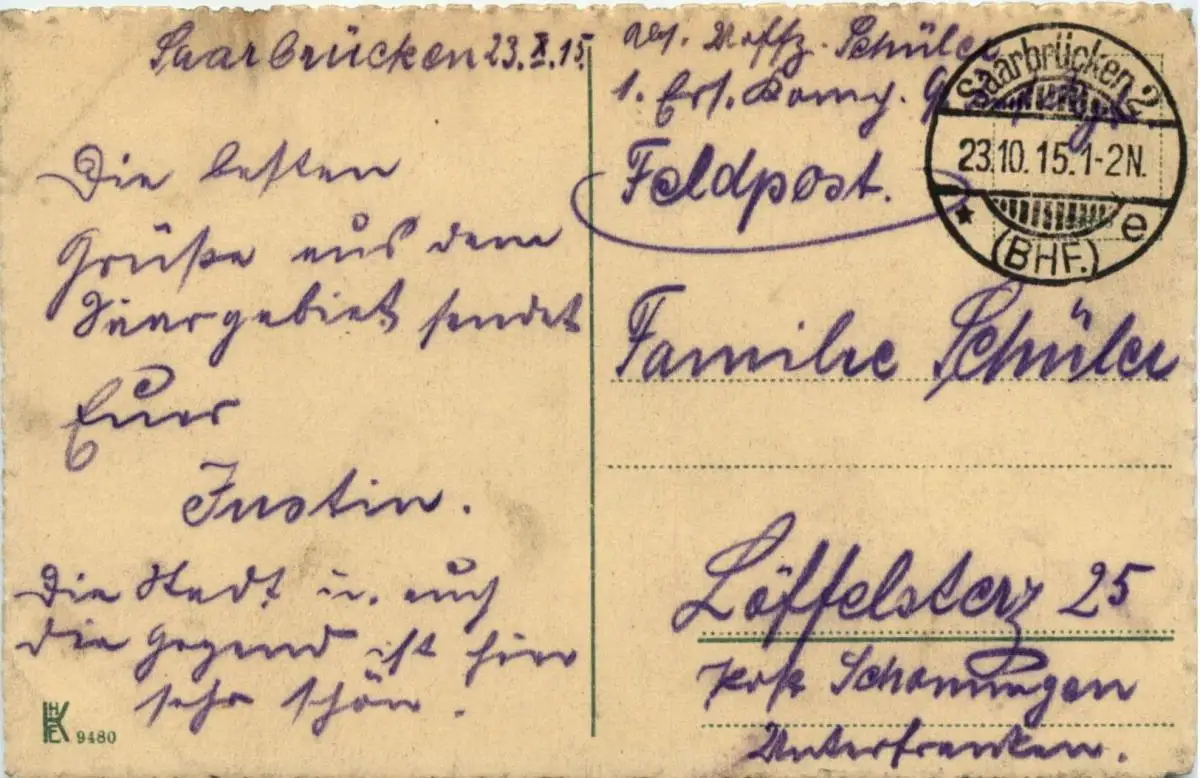 Saarbrücken 23.X.15.
Die besten
Grüße aus dem
Saargebiet sendet
Euer
Justin.
Die Stadt u. auch
die Gegend ist hier
sehr schön.
9480
Abs. Schüler
1. Ers. Komp.
Feldpost.
Saarbrücken 2
23.10.15.1-2N.
* (BHF.) e
Familie Schüler
Löffelsterz 25
Post Schonungen
Unterfranken.